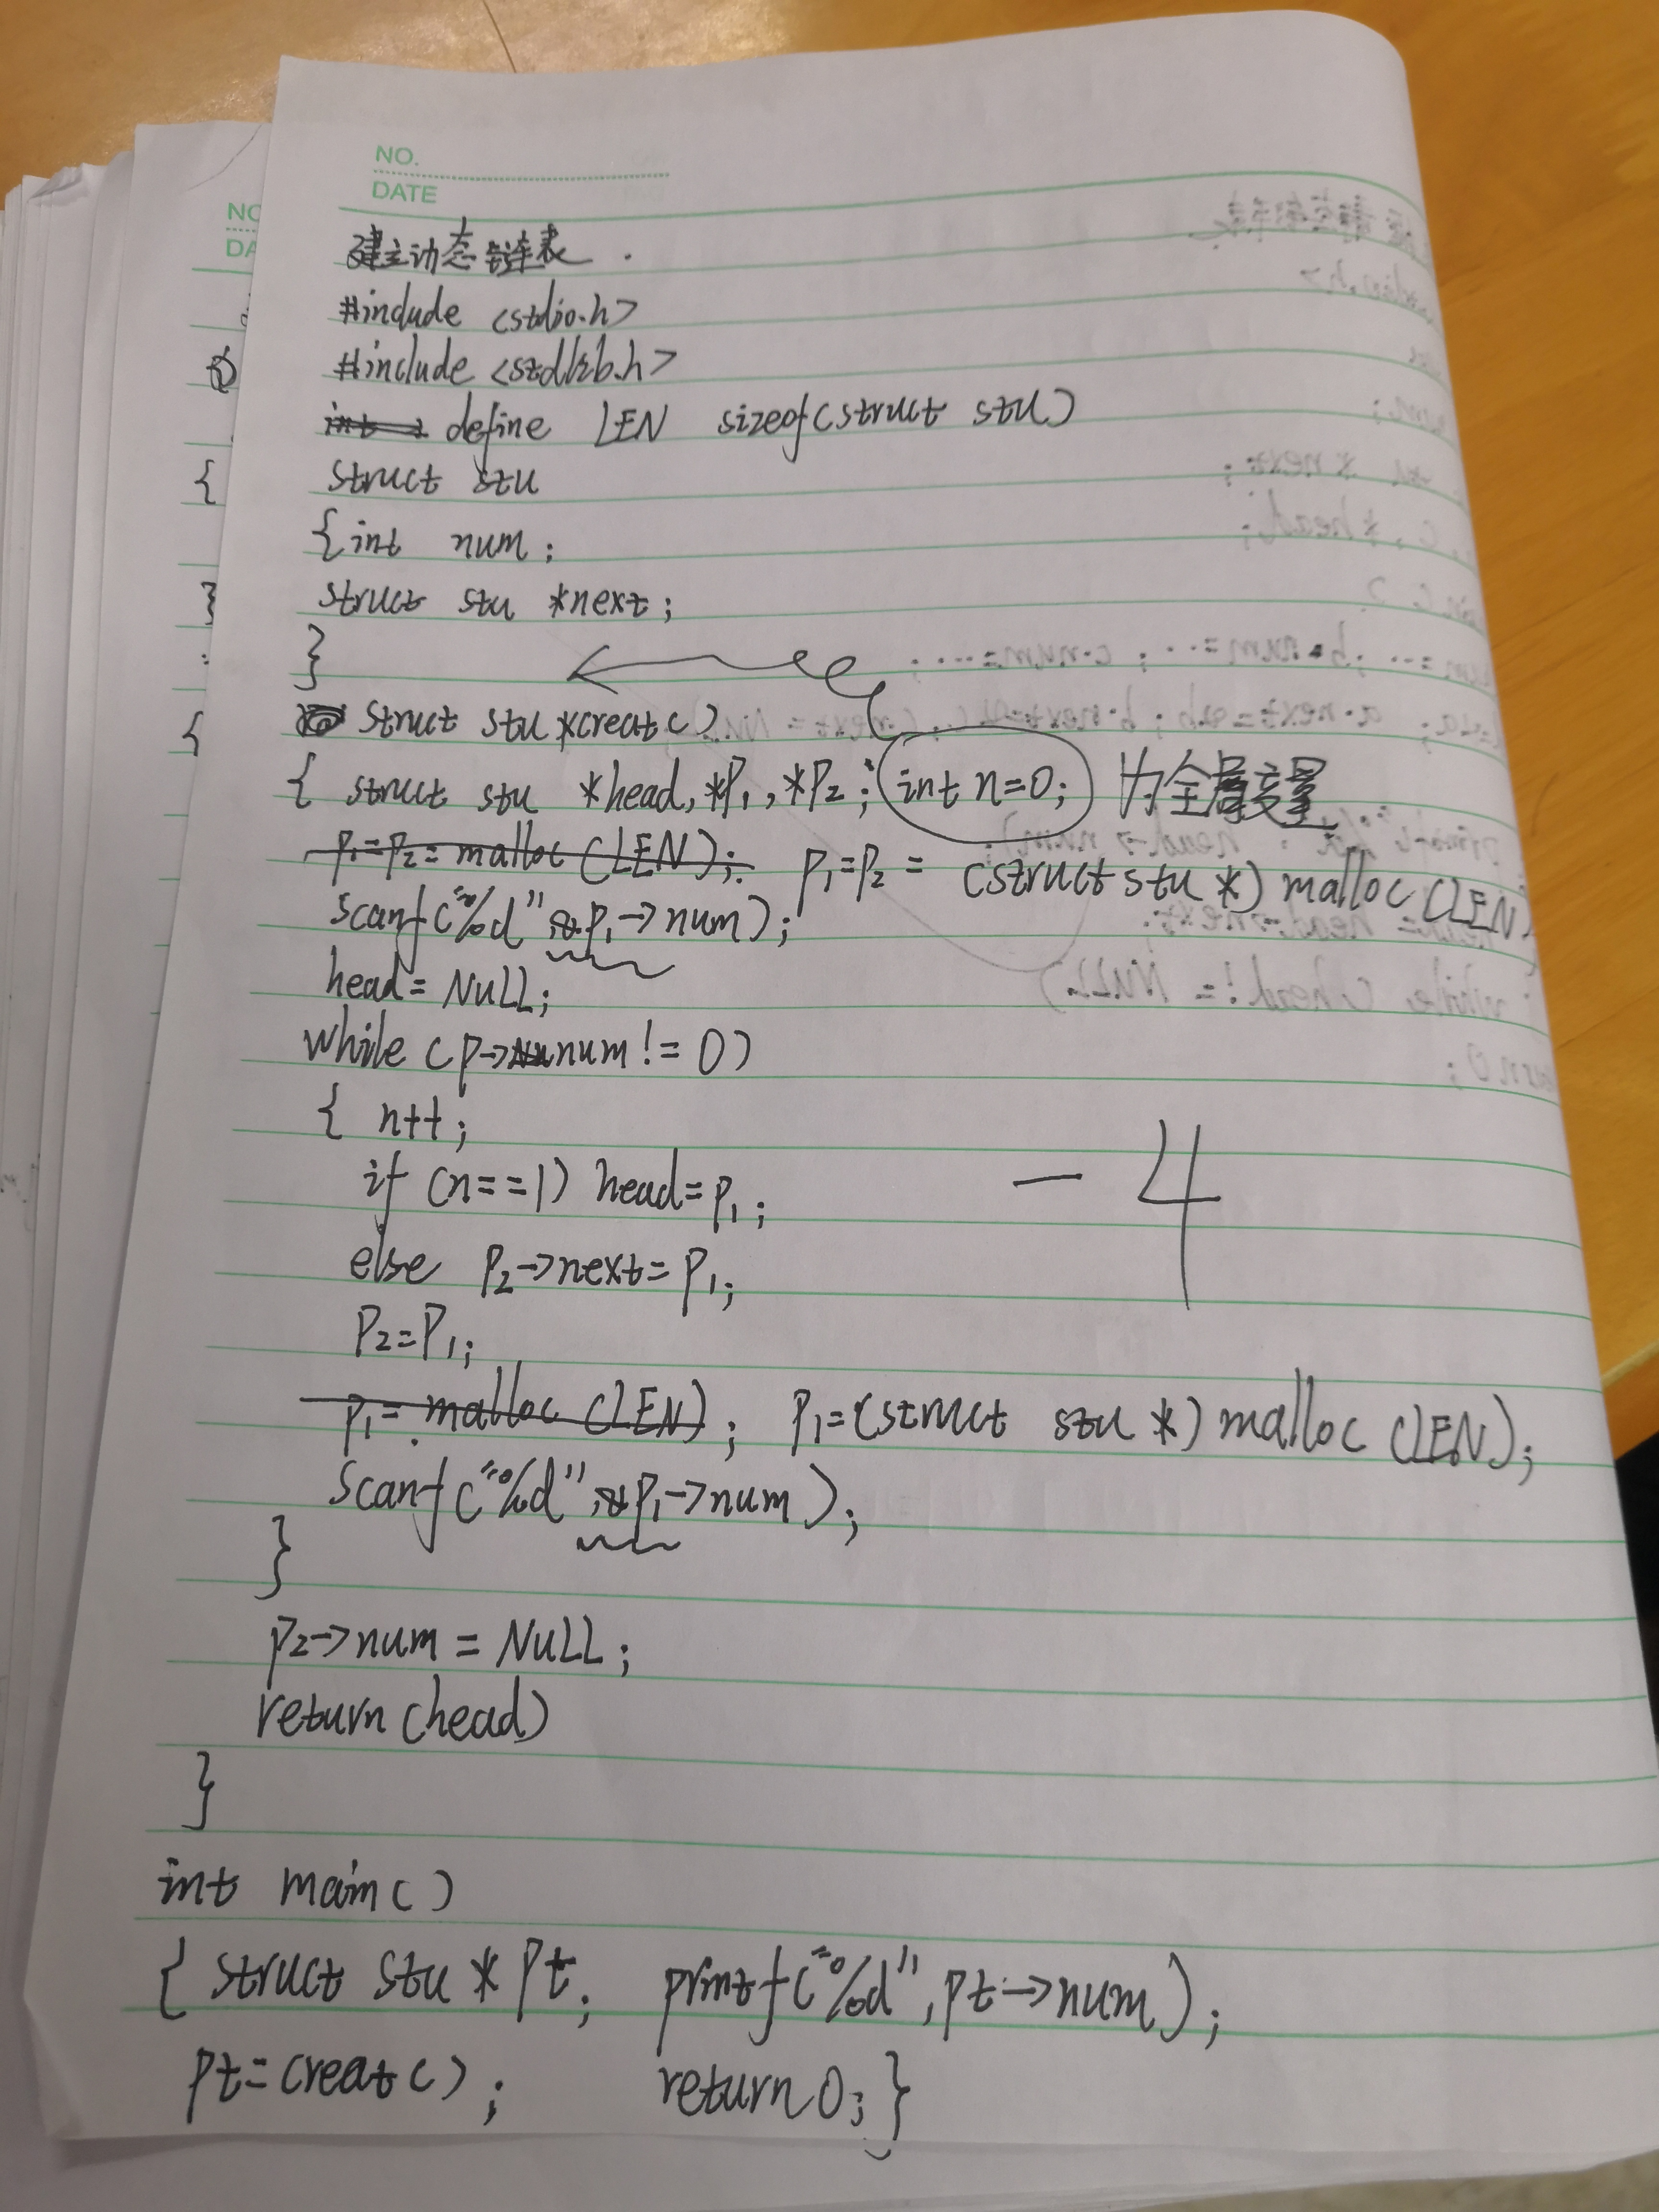 NO.
DATE
建立动态链表.
#include <stdio.h>
#include <stdlib.h>
define LEN sizeof(struct stu)
struct stu
{int num;
struct stu *next;
}
struct stu *creat()
{ struct stu *head,*P1,*P2; int n=0; 为全局变量
p1=p2=malloc(LEN); p1=p2= (struct stu *) malloc(LEN)
scanf("%d",&p1->num);
head=NULL;
while (p->num!=0)
{ n++;
if (n==1) head=p1;
else P2->next=p1;
P2=P1;
p1=malloc(LEN); p1=(struct stu *) malloc(LEN);
scanf("%d",&p1->num);
}
p2->num=NULL;
return(head)
}
-4
int main()
{ struct stu * pt; printf("%d",pt->num);
pt=creat(); return 0;}
NO
DA
{
}
{